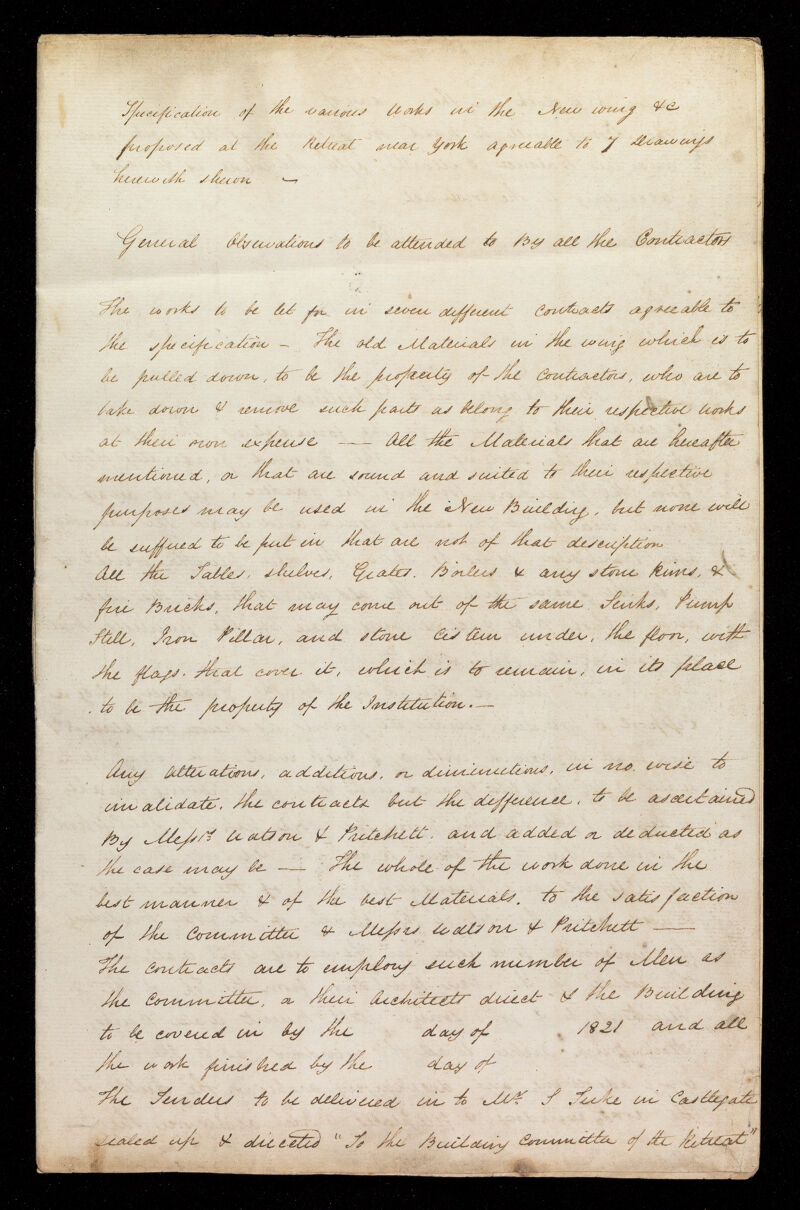 Specification of the various Works in the New wing &c
proposed at the Retreat near York agreeable to 7 Drawings
herewith shewn —
General Observations to be attended to By all the Contractors
The works to be let for in seven different contracts agreeable to
the specification – The old Materials in the wing which is to
be pulled down, to be the property of the Contractors, who are to
take down & remove such parts as belong to their respective Works
at their own expense — All the Materials that are hereafter
mentioned, or that are sound and suited to their respective
purposes may be used in the New Building, but none will
be suffered to be put in that are not of that description
All the Tables, shelves, Grates, Boilers & any stone Rims, &
fire Bricks, that may come out of the same Sinks, Pump
Still, Iron Pillar, and stone Cistern under, the floor, with
the flags. that cover it, which is to remain, in its place
to be the property of the Institution. —
Any alterations, additions, or diminutions, in no wise to
invalidate, the contracts but the difference, to be ascertained
By Messrs Watson & Pritchett and added or deducted as
the case may be — The whole of the work done in the
best manner & of the best Materials, to the satisfaction
of the Committee & Messrs Watson & Pritchett —
The contracts are to employ such number of Men as
the Committee, or their Architects direct & the Building
to be covered in by the day of 1821 and all
the work finished by the day of
The Tenders to be delivered in to Mr S Tuke in Castlegate
sealed up & directed "To the Building Committee of the Retreat"